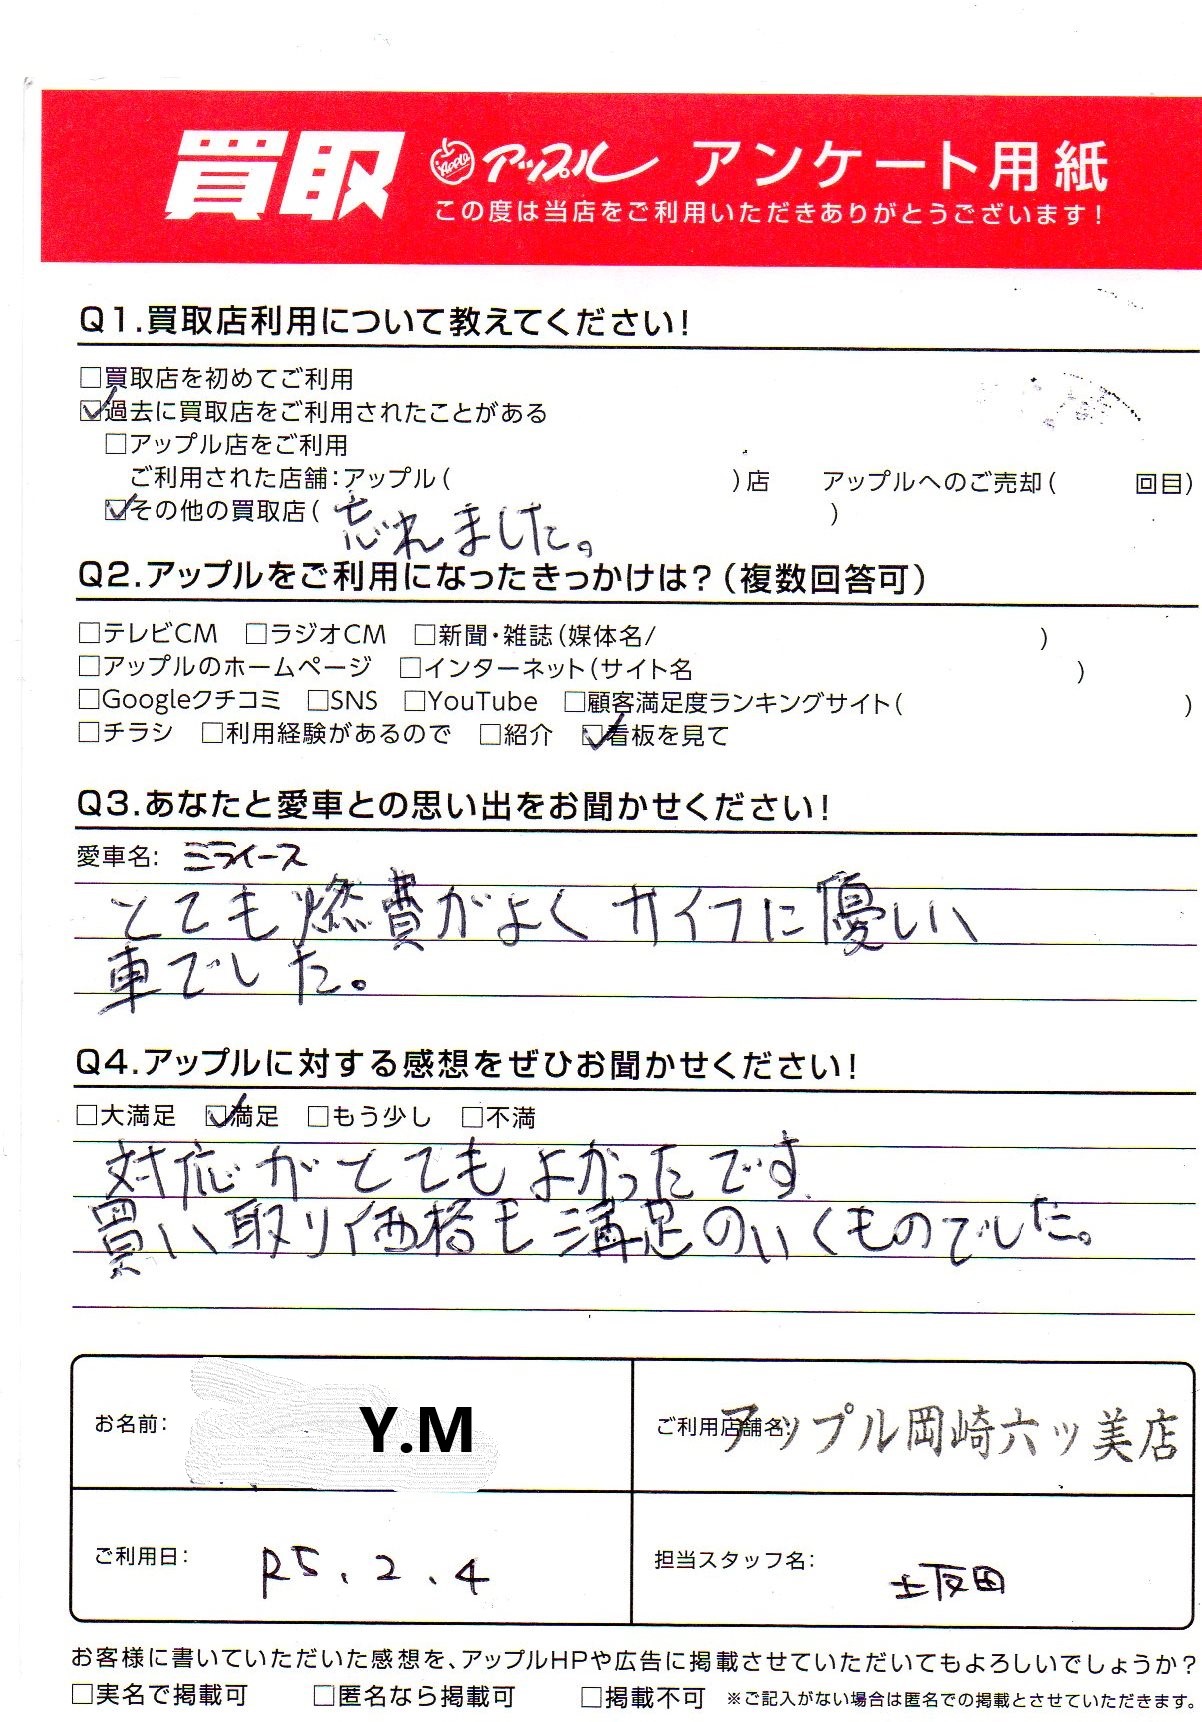 買取 Apple アップル アンケート用紙
この度は当店をご利用いただきありがとうございます!
Q1.買取店利用について教えてください!
□買取店を初めてご利用
☑過去に買取店をご利用されたことがある
□アップル店をご利用
ご利用された店舗:アップル( )店 アップルへのご売却( 回目)
☑その他の買取店(忘れました。)
Q2.アップルをご利用になったきっかけは?(複数回答可)
□テレビCM □ラジオCM □新聞・雑誌(媒体名/ )
□アップルのホームページ □インターネット(サイト名 )
□Googleクチコミ □SNS □YouTube □顧客満足度ランキングサイト( )
□チラシ □利用経験があるので □紹介 ☑看板を見て
Q3.あなたと愛車との思い出をお聞かせください!
愛車名: ミライース
とても燃費がよくサイフに優しい
車でした。
Q4.アップルに対する感想をぜひお聞かせください!
□大満足 ☑満足 □もう少し □不満
対応がとてもよかったです
買い取り価格も満足のいくものでした。
お名前: Y.M ご利用店舗名: アップル岡崎六ッ美店
ご利用日: R5.2.4 担当スタッフ名:
お客様に書いていただいた感想を、アップルHPや広告に掲載させていただいてもよろしいでしょうか?
□実名で掲載可 □匿名なら掲載可 □掲載不可 ※ご記入がない場合は匿名での掲載とさせていただきます。